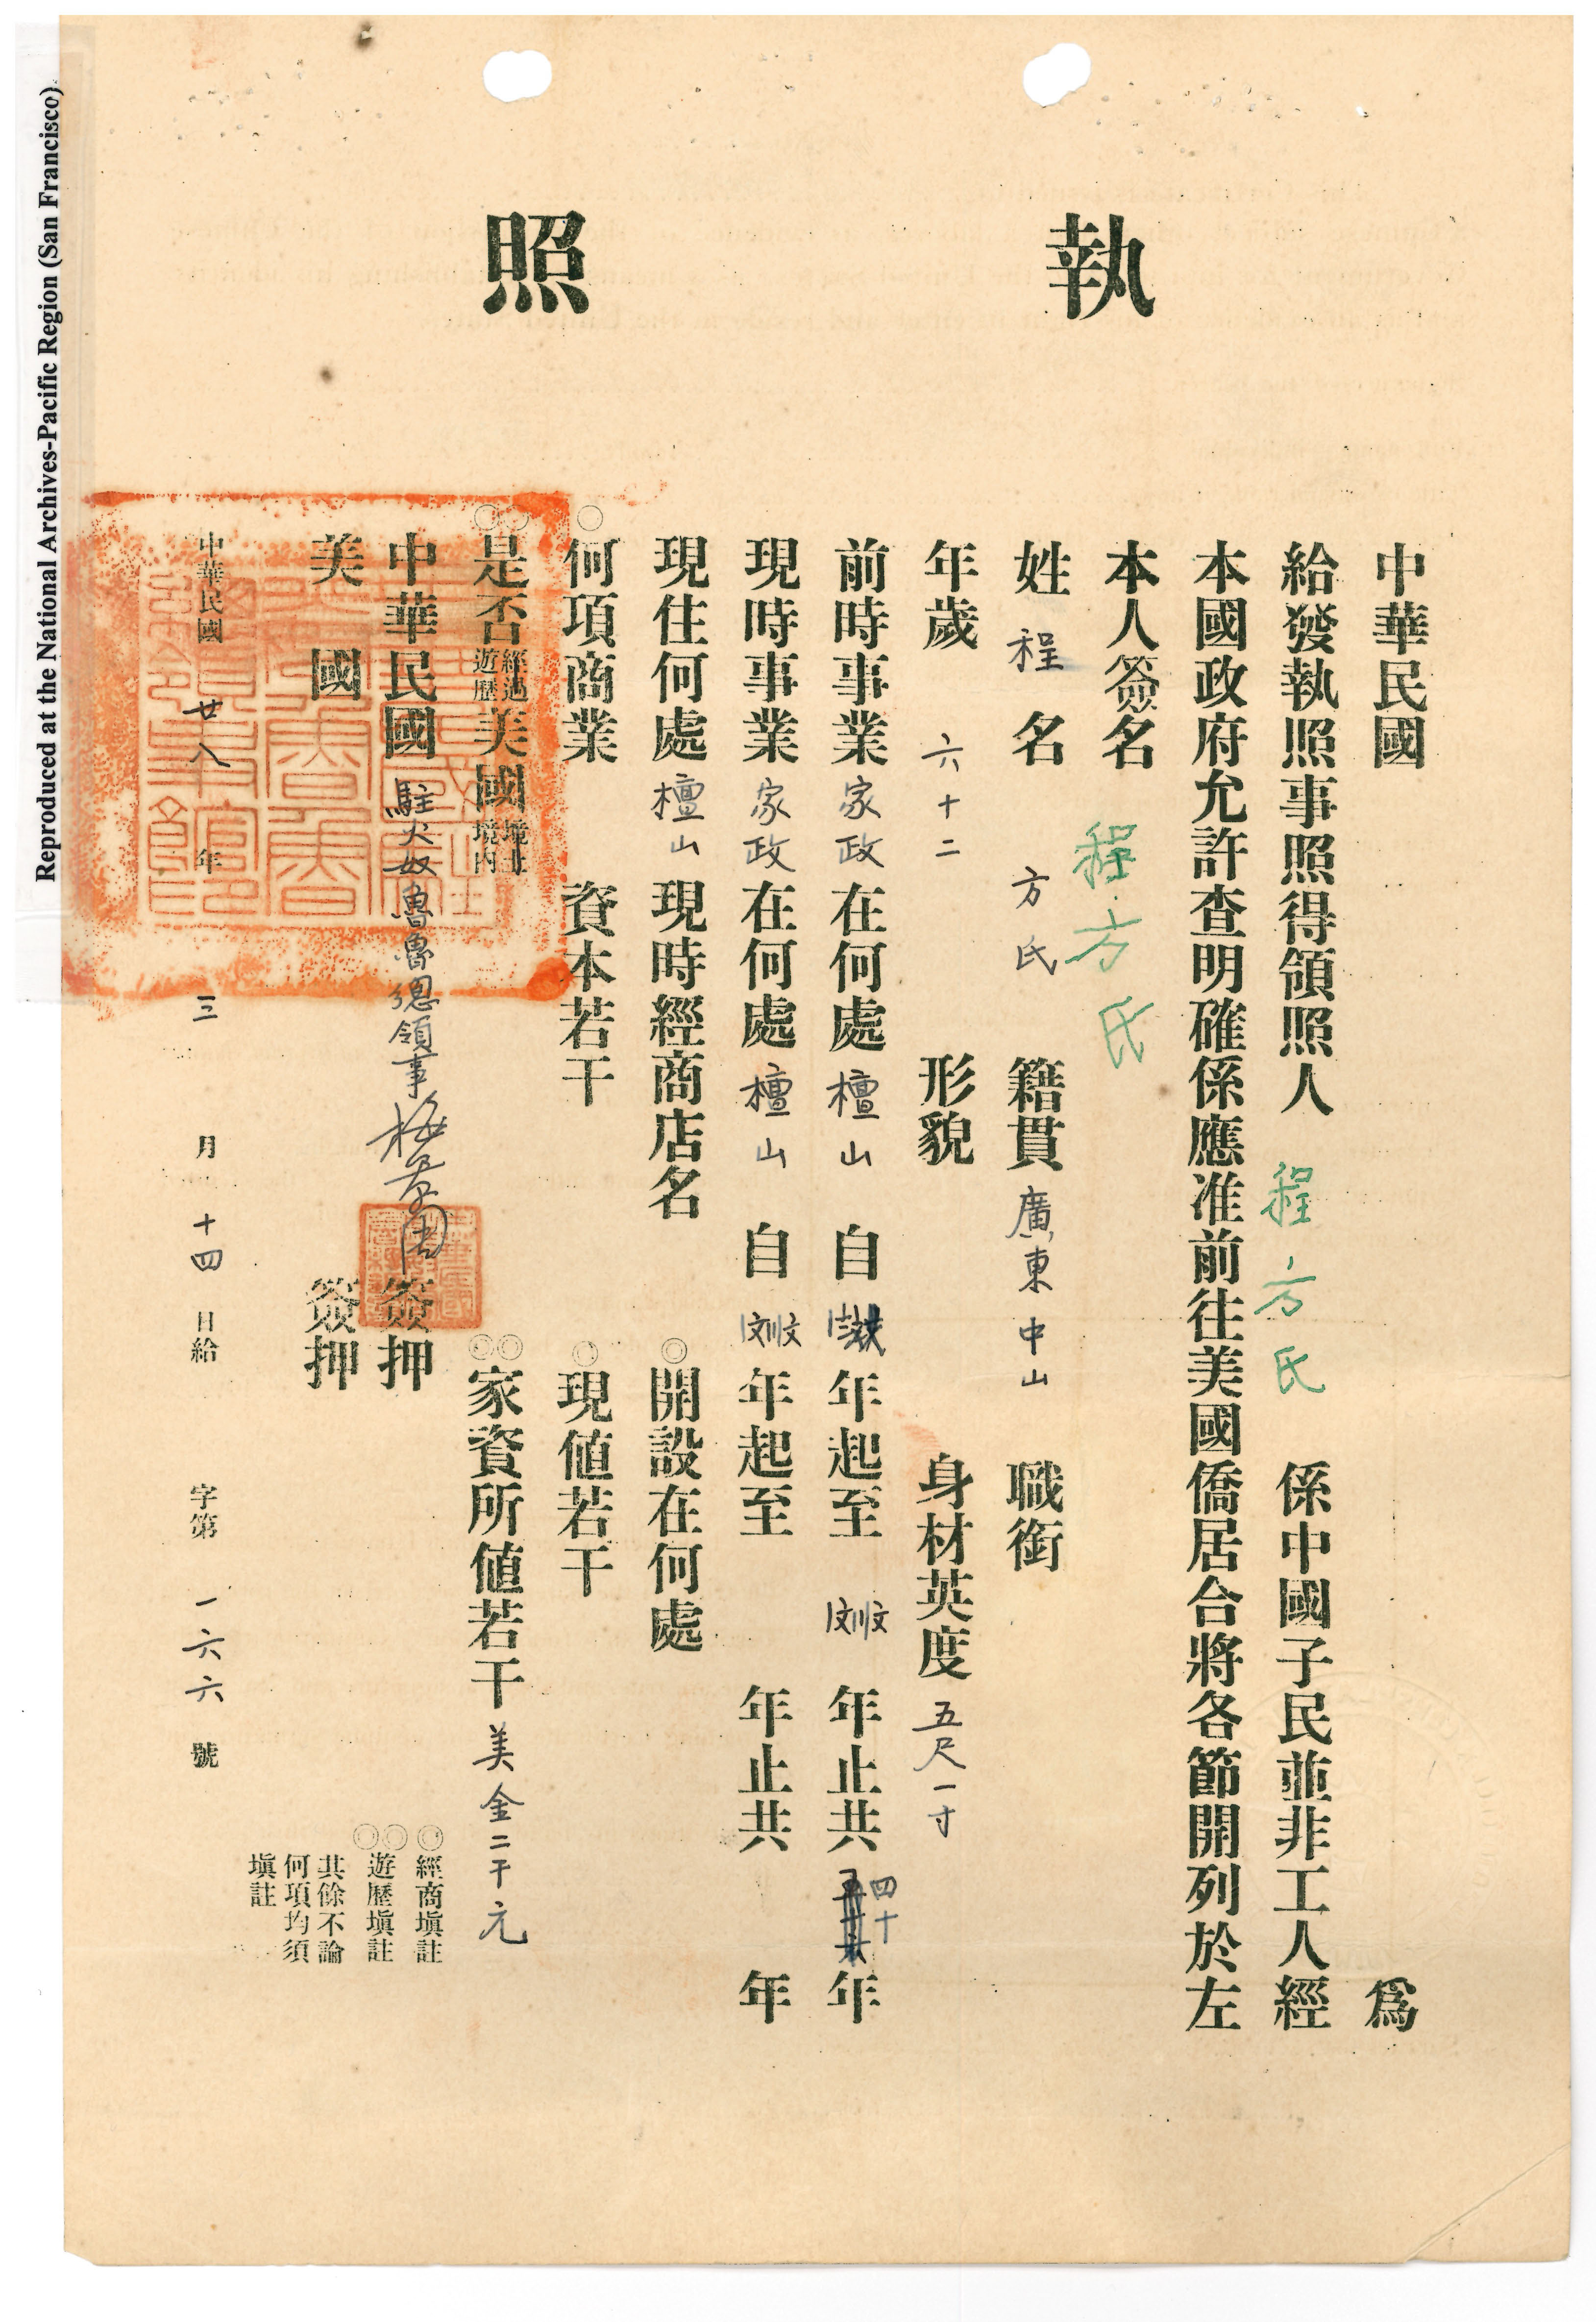 Reproduced at the National Archives-Pacific Region (San Francisco)
執照
中華民國 爲
給發執照事照得領照人 程方氏 係中國子民並非工人經
本國政府允許查明確係應准前往美國僑居合將各節開列於左
本人簽名 程方氏
姓 程 名 方氏 籍貫 廣東中山 職銜
年歲 六十二 形貌 身材英度 五尺一寸
前時事業 家政 在何處 檀山 自 年起至 年止共 四十 年
現時事業 家政 在何處 檀山 自 年起至 年止共 年
現住何處 檀山 現時經商店名 ◎開設在何處
◎何項商業 資本若干 ◎現値若干
◎◎是否經過遊歷美國境土境內 ◎◎家資所値若干 美金二千元
中華民國 駐火奴魯魯總領事 簽押
美國 簽押
中華民國 廿八 年 三 月 十四 日給 字第 一六六 號
◎經商塡註
◎◎遊歷塡註
其餘不論
何項均須
塡註